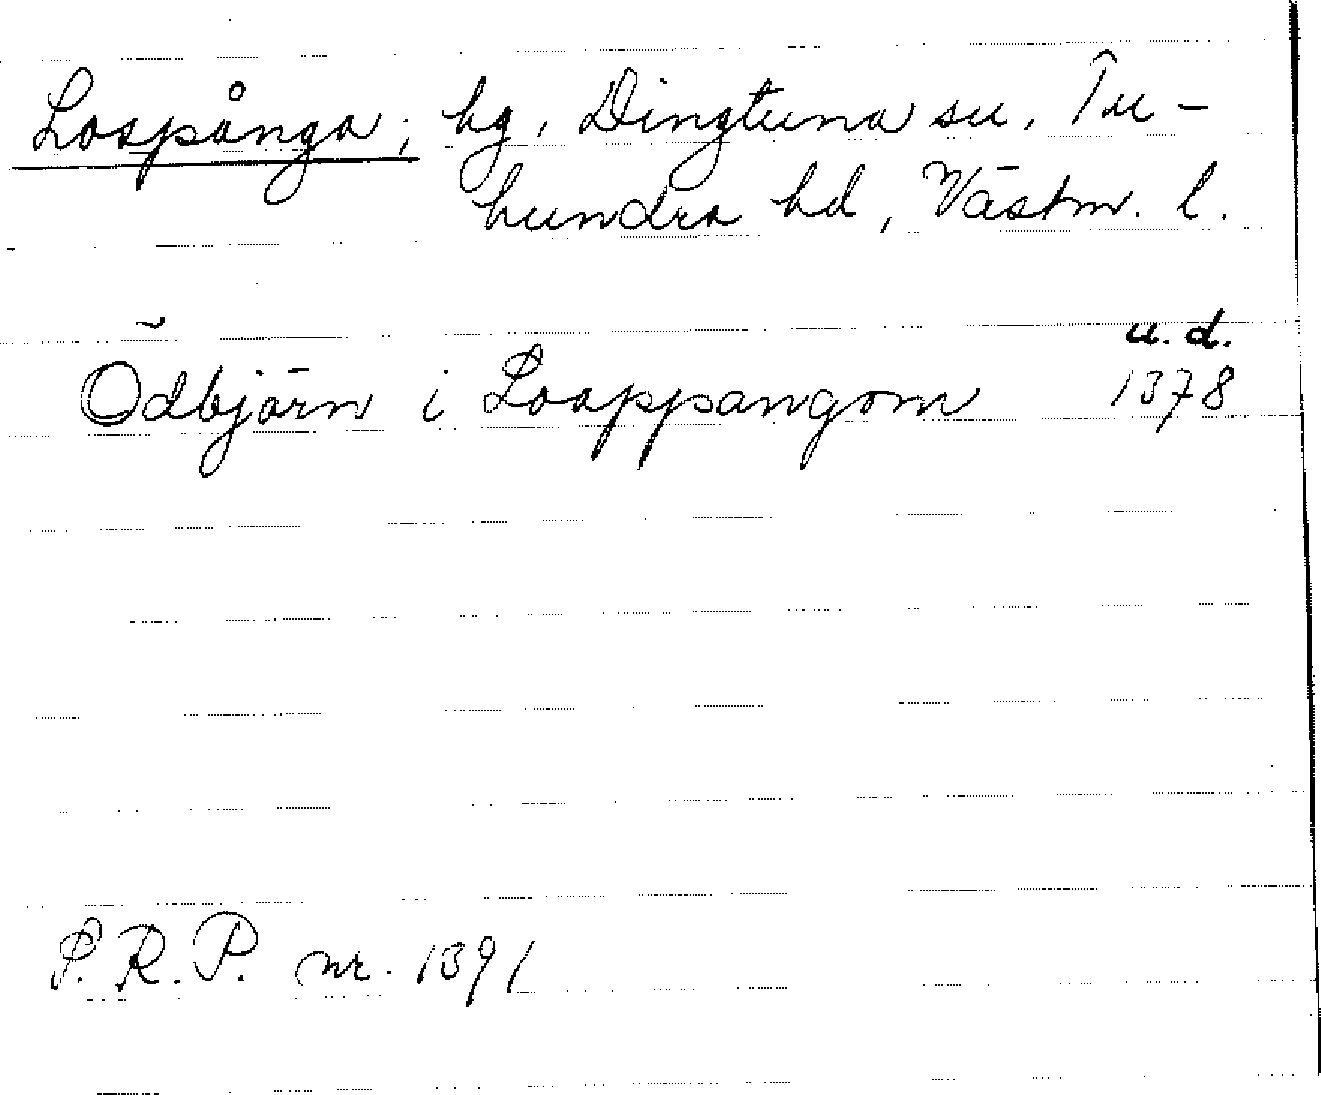 Lospånga, by, Dingtuna sn, Tu-
hundra hd, Västm. l.
u. d.
Ödbjörn i Loappangom 1378
S.R.P. nr. 1391